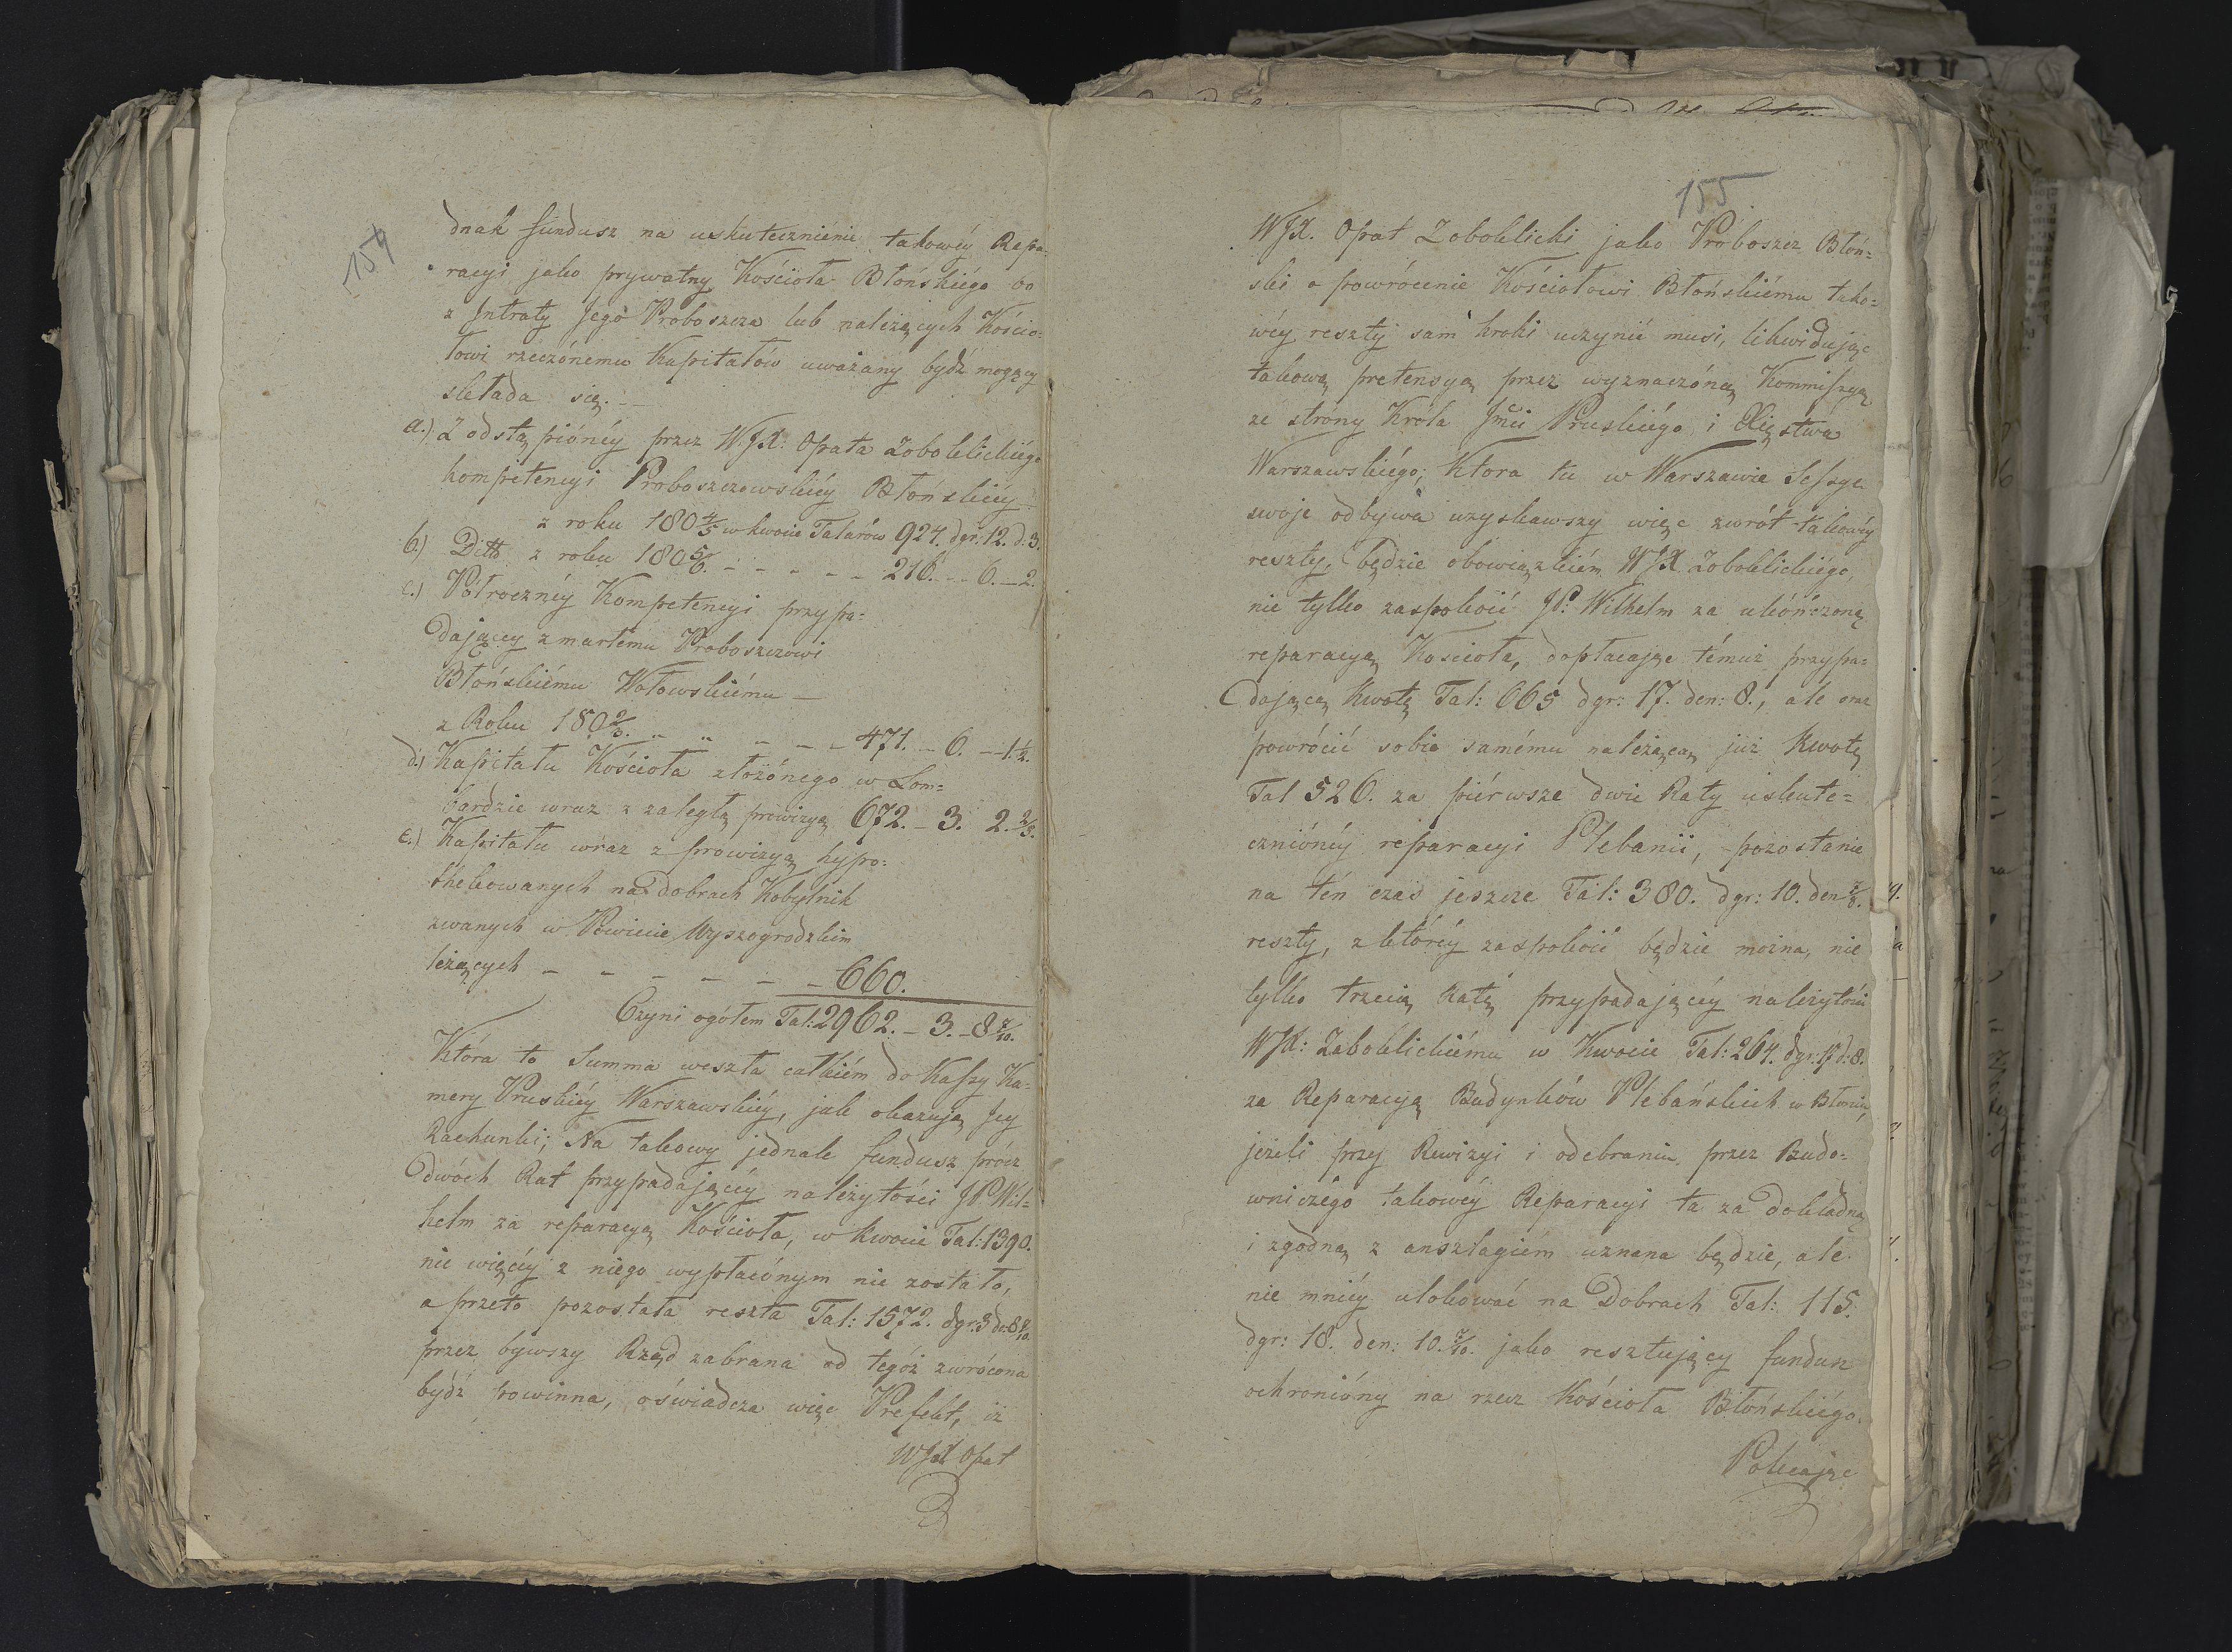 154
dnak fundusz na uskutecznienie takowéy Repa-
racyi jako prywatny Kościoła Błońskiégo bo
z Intraty Jego Proboszcza lub należących Kościo-
łowi rzeczónemu Kapitałów uważany bydź mogący
składa się. —
a.) Z odstąpiónéy przez WJX: Opata Zoboklickiégo
kompetencyi Proboszczowskiéy Błońskiéy
z roku 180 4/5 w kwocie Talarów 924. dgr: 12. d: 3.
b.) Ditto z roku 180 5/6. - - - - - 216. - - 6. — 2.
c.) Półrocznéy Kompetencyi przypa-
dającey zmarłému Proboszczowi
Błońskiému Wołowskiému —
z Roku 180 2/3. - - - - - 471. - 6. - 1 1/2.
d.) Kapitału Kościoła złożónego w Lom=
bardzie wraz z zaległą prowizyą 672. - 3. 2. 2/3.
e.) Kapitału wraz z prowizyą hypo=
thekowanych na Dobrach Kobylnik
zwanych w Powiecie Wyszogrodzkim
leżących - - - - - - 660.
Czyni ogółem Tal: 2962. - 3. - 8 7/10.
Która to Summa weszła całkiém do Kassy Ka-
mery Pruskiéy Warszawskiéy, jak okazują Jey
Rachunki; Na takowy jednak fundusz prócz
dwóch Rat przypadającéy należytości JP Wil=
helm za reparacyą Kościoła, w kwocie Tal: 1390.
nic więcéy z niego wypłacónym nie zostało,
a przeto pozostała reszta Tal: 1572. dgr: 3 d: 8 7/10.
przez bywszy Rząd zabrana od tegóż zwrócona
bydź powinna, oświadcza więc Prefekt, iż
WJX Opat
155
WJX. Opat Zoboklicki jako Proboszcz Błoń=
ski o powrócenie Kościołowi Błońskiému tako=
wéy reszty sam kroki uczynić musi, likwidując
takową pretensyą przez wyznaczóną Kommissyą
ze stróny Króla Jmci Pruskiégo i Xięstwa
Warszawskiégo; Która tu w Warszawie Sessye
swoje odbywa uzyskawszy więc zwrót takowéy
reszty, będzie obowiązkiém WJX Zoboklickiégo,
nie tylko zaspokoić JP: Wilhelm za ukończoną
reparacyą Kościoła, dopłacając témuż przypa=
dającą Kwotę Tal: 665 dgr: 17. den: 8., ale oraz
powrócić sobie samému należącą już Kwotę
Tal 526. za piérwsze dwie Raty uskute=
czniónéy reparacyi Plebanii, pozostanie
na tén czas jeszcze Tal: 380. dgr: 10. den 7/8.
reszty, z którey zaspokoić będzie można, nie
tylko trzecią Ratę przypadającéy należytości
WJX: Zaboklickiému w Kwocie Tal: 264. dgr: 17 d: 8.
za Reparacyą Budynków Plebańskich w Błoniu,
jeżeli przy Rewizyi i odebraniu przez Budo=
wniczégo takowéy Reparacyi ta za dokładną
i zgodną z anszlagiém uznana będzie, ale
nie mniéy ulokować na Dobrach Tal: 115.
dgr: 18. den: 10. 7/10. jako resztujący fundusz
ochronióny na rzecz Kościoła Błońskiégo.
Polecając